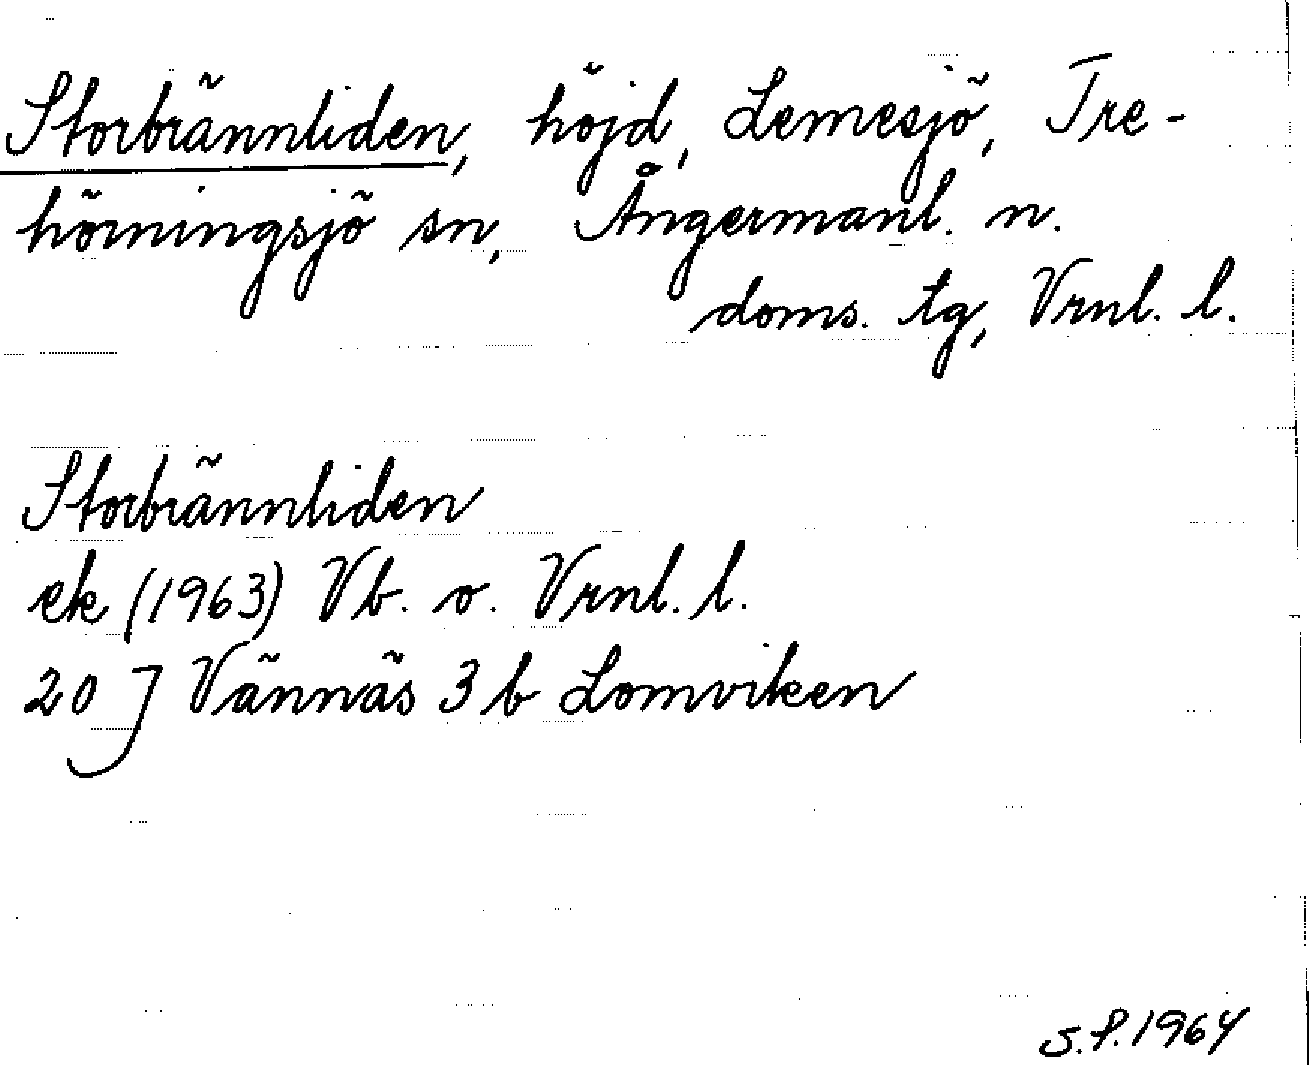 Storbrännliden, höjd, Lemesjö, Tre-
hörningsjö sn, Ångermanl. n.
doms. tg, Vrnl. l.
Storbrännliden
ek (1963) Vb. o. Vrnl. l.
20 J Vännäs 3 b Lomviken
S.P. 1964